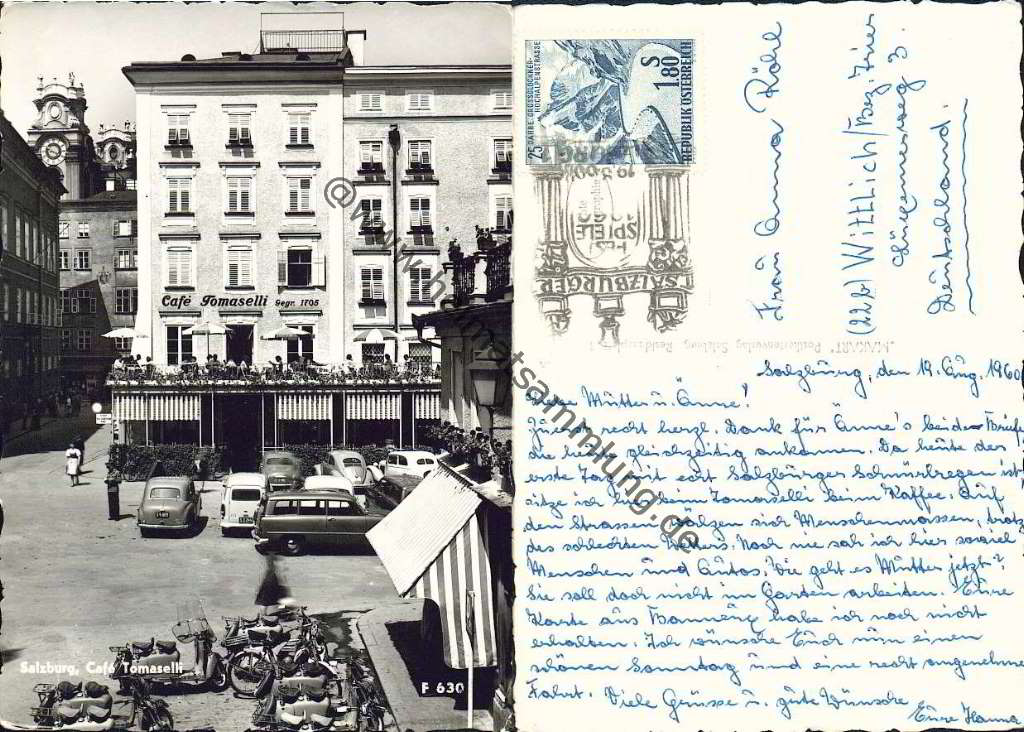 Café Tomaselli Gegr. 1705
Salzburg, Café Tomaselli
F 630
25 JAHRE GROSSGLOCKNER-
HOCHALPENSTRASSE
S
1.80
REPUBLIK ÖSTERREICH
SALZBURGER
FEST
SPIELE
Frau Anna Röhl
(22b) Wittlich/Bez. Trier
3.
Deutschland.
"MAKART" Postkartenverlag Salzburg,
Salzburg, den 19. Aug. 1960
Liebe Mutter u. Änne!
Zuerst recht herzl. Dank für Änne's beiden Briefe
die heute gleichzeitig ankamen. Da heute der
erste Tag mit echt Salzburger Schnürlregen ist
sitze ich hier beim Tomaselli beim Kaffee. Auf
den Strassen wälzen sich Menschenmassen, trotz
des schlechten Wetters. Noch nie sah ich hier soviel
Menschen und Autos. Wie geht es Mutter jetzt?
Sie soll doch nicht im Garten arbeiten. Eure
Karte aus habe ich noch nicht
erhalten. Ich wünsche Euch nun einen
schönen Sonntag und eine recht angenehme
Fahrt. Viele Grüsse u. gute Wünsche
Eure Hanna
@www.heimatsammlung.de